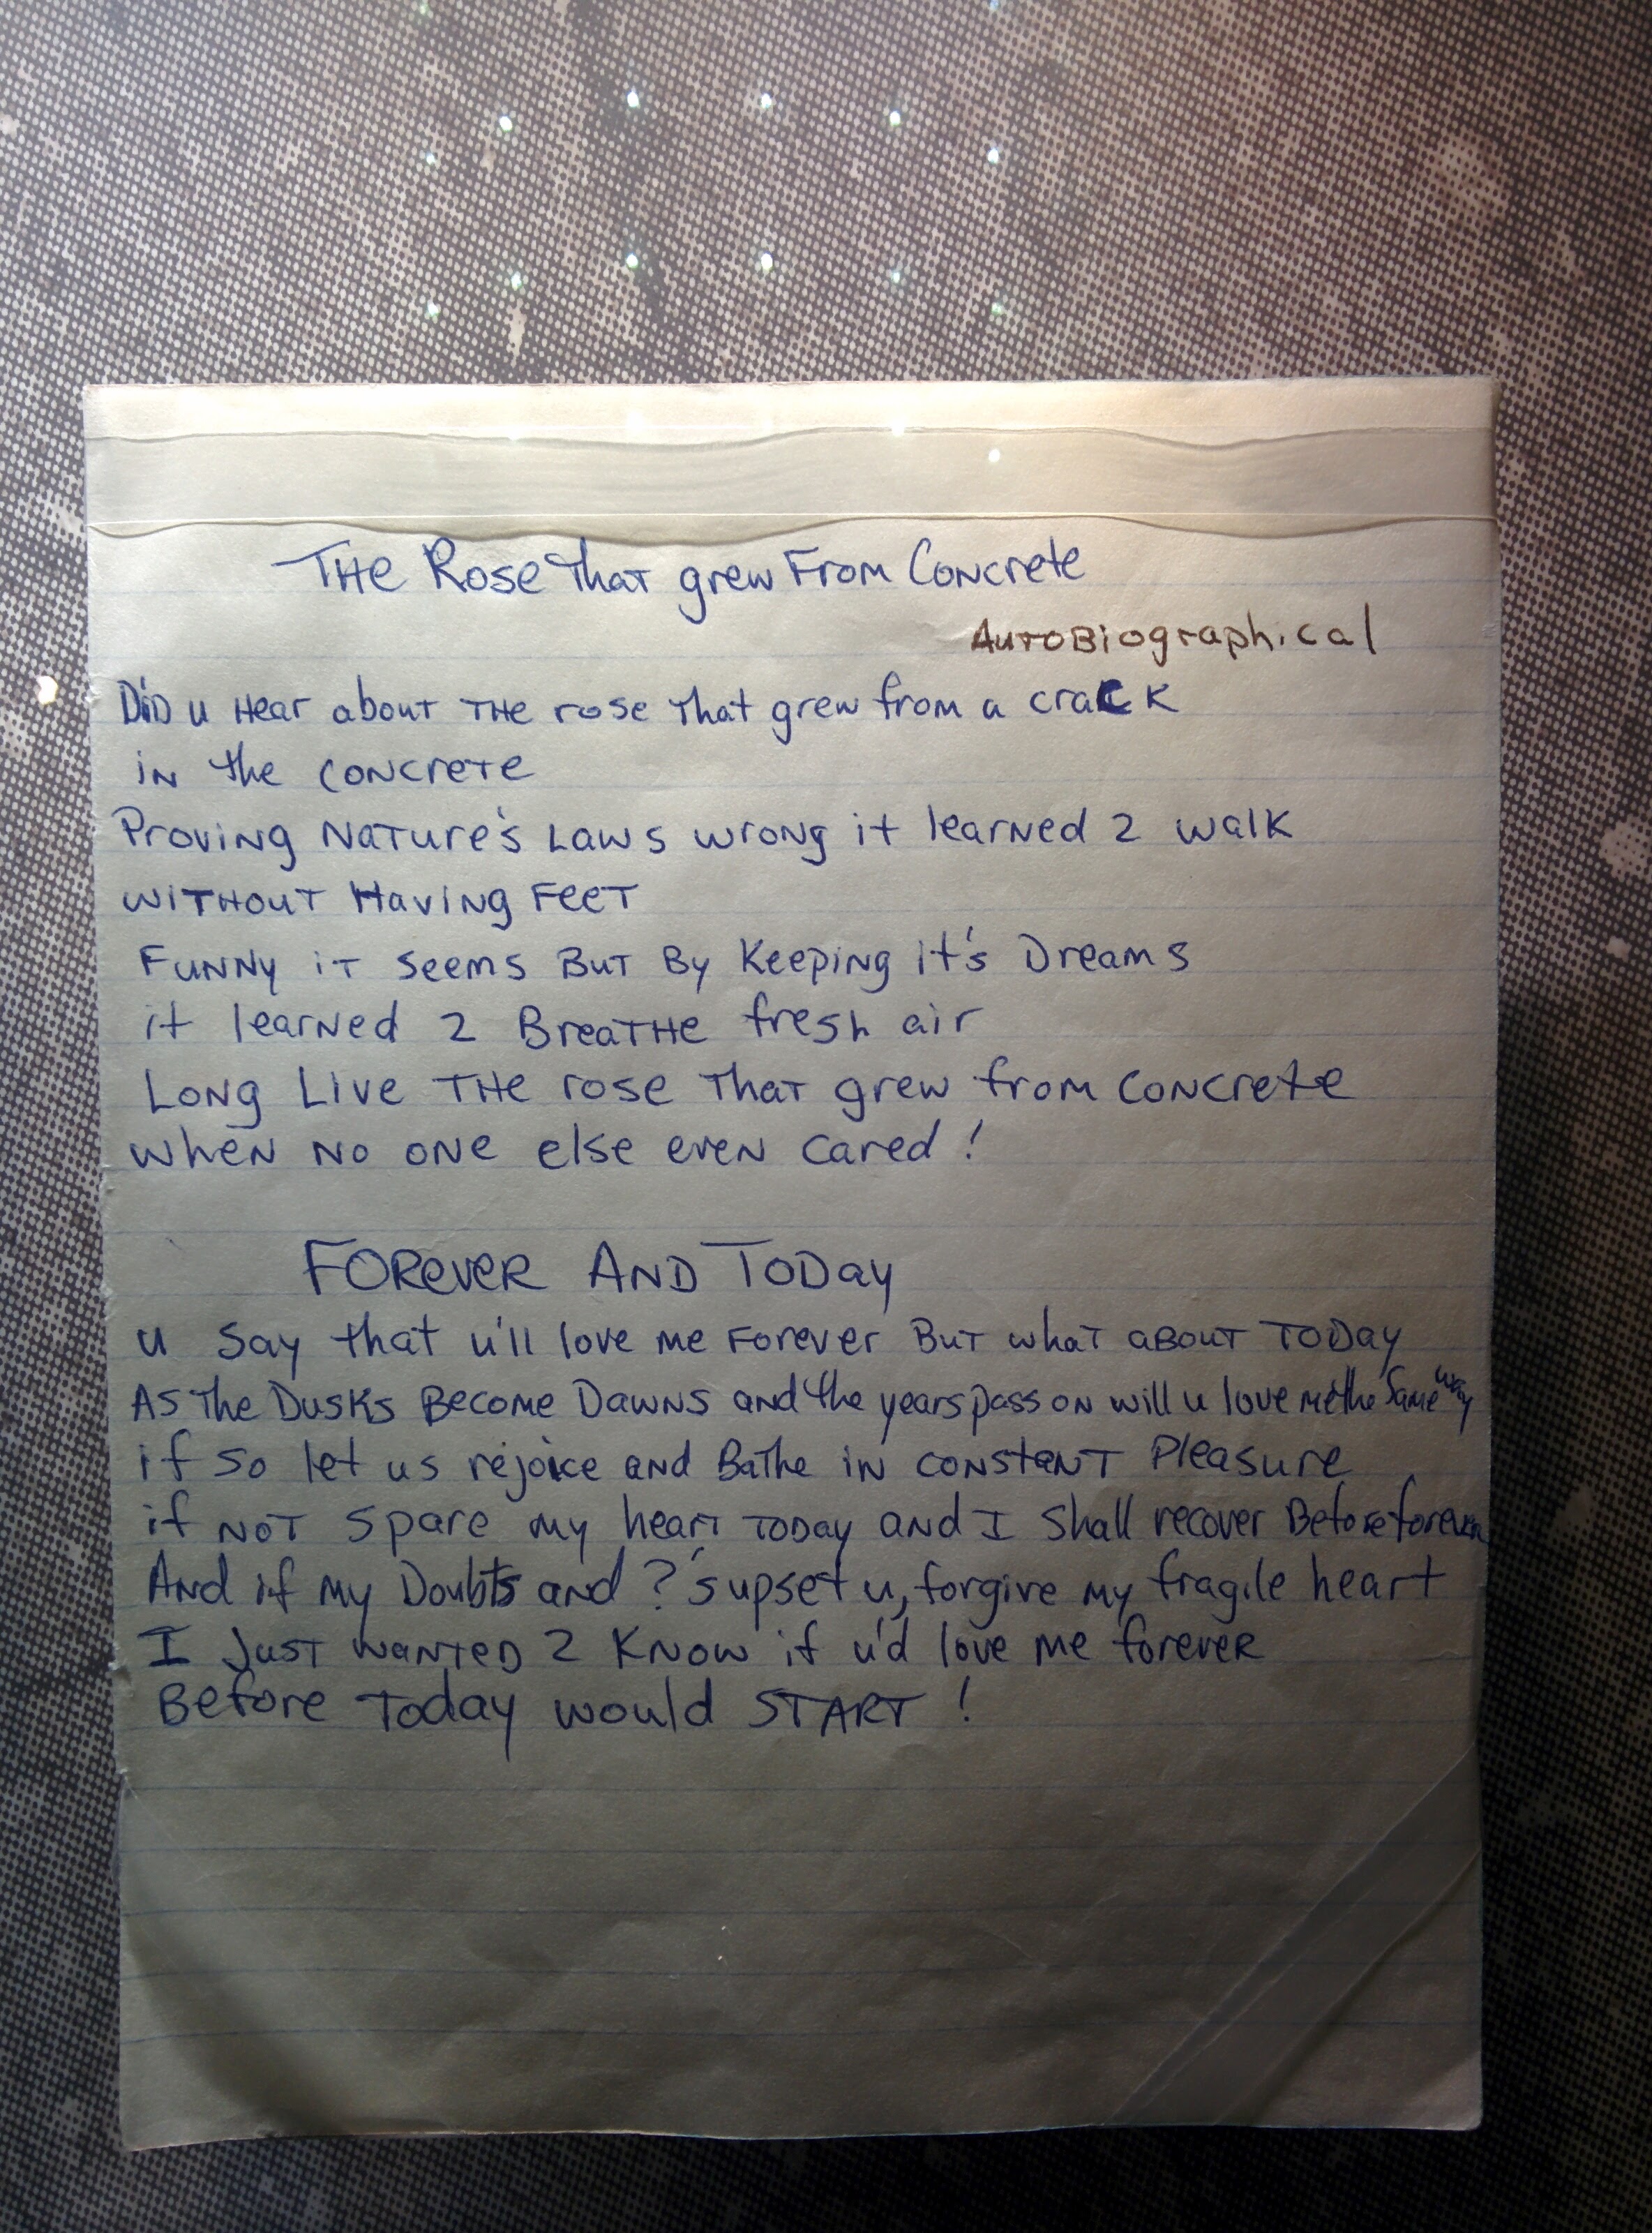 THe Rose That grew From Concrete
AutoBiographical
DiD u Hear about THe rose That grew from a craCK
iN the CoNcreTe
ProviNg NaTure's Laws wroNg it learNed 2 walK
wiTHouT HaviNg FeeT
FuNNy iT seems BuT By KeepiNg it's Dreams
it learNed 2 BreaTHe fresh air
LoNg Live THe rose ThaT grew from CoNcrete
wheN No oNe else eveN cared!
FOReveR AND ToDay
u say that u'll love me Forever BuT whaT aBouT ToDay
As The DusKs Become DawNs aNd the years pass oN will u love me the same way
if so let us rejoice aNd BaThe iN coNstaNT Pleasure
if NoT spare my hearT ToDay aNd I shall recover Before foreveR
ANd if my Doubts aNd ?'s upset u, forgive my fragile heart
I JusT waNTeD 2 KNow if u'd love me foreveR
Before Today would START!